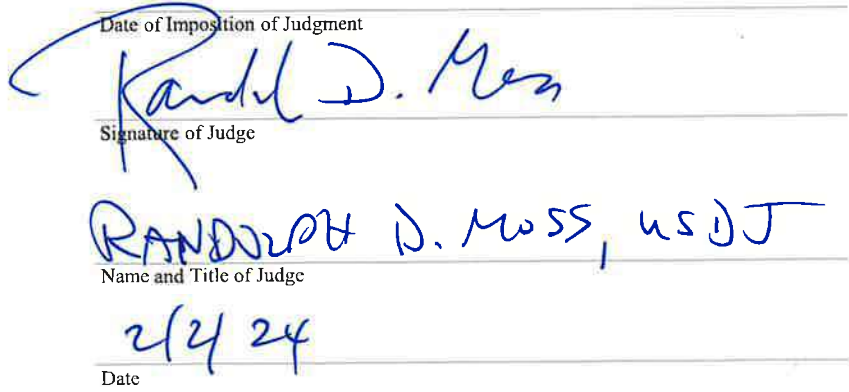 Date of Imposition of Judgment
Randol D. Moss
Signature of Judge
RANDOLPH D. MOSS, USDJ
Name and Title of Judge
2/2/24
Date